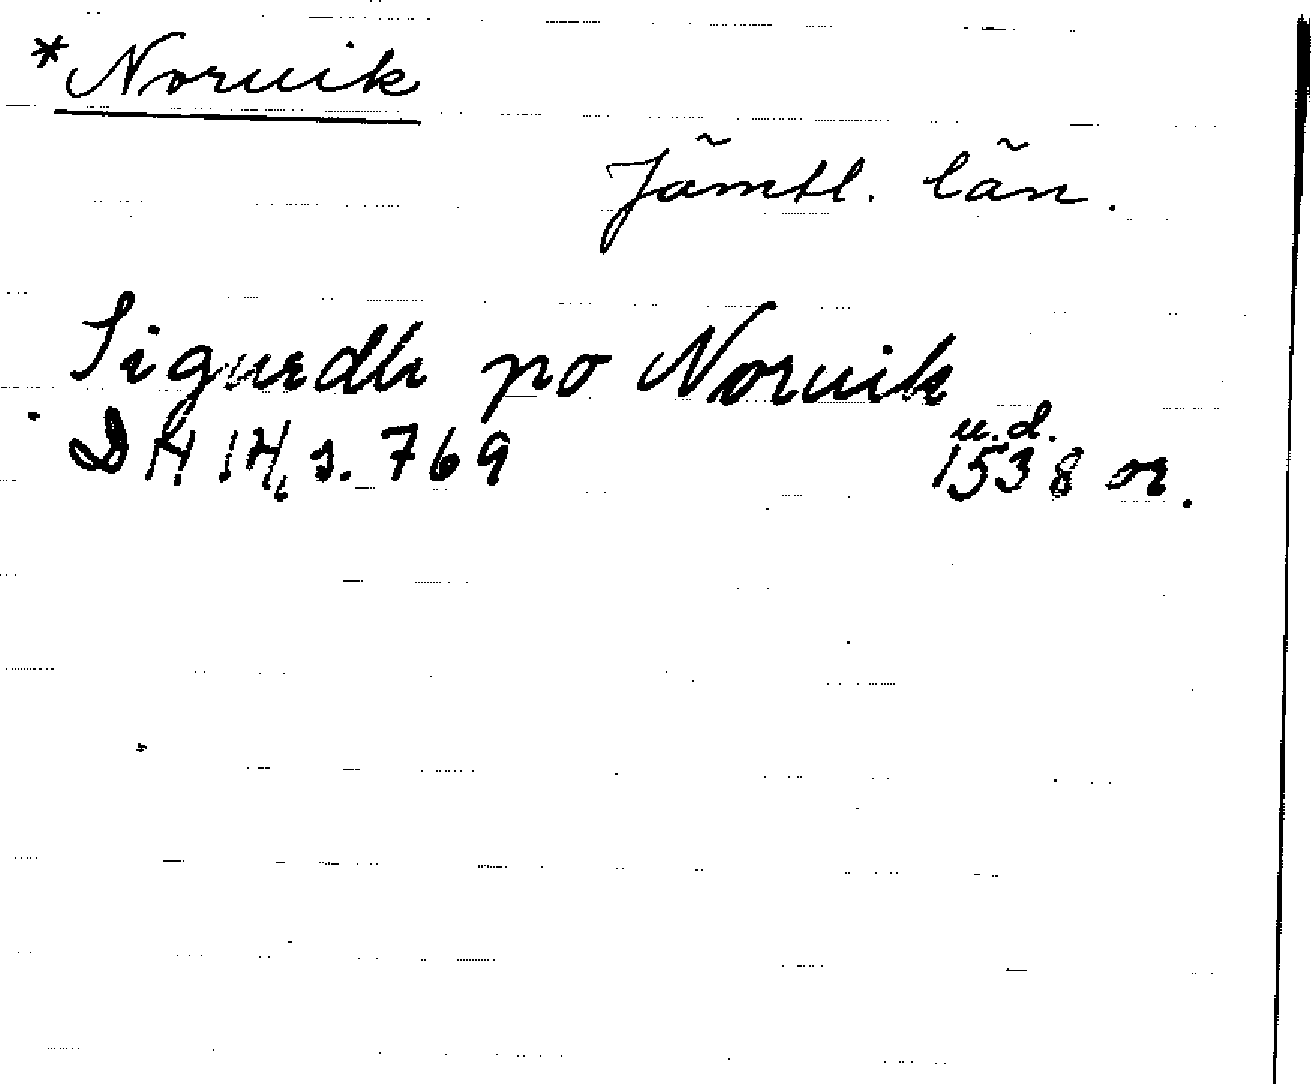 *Norvik
Jämtl. län.
Sigurdh po Norvik
DN 14, s. 769
u.d.
1538 or.